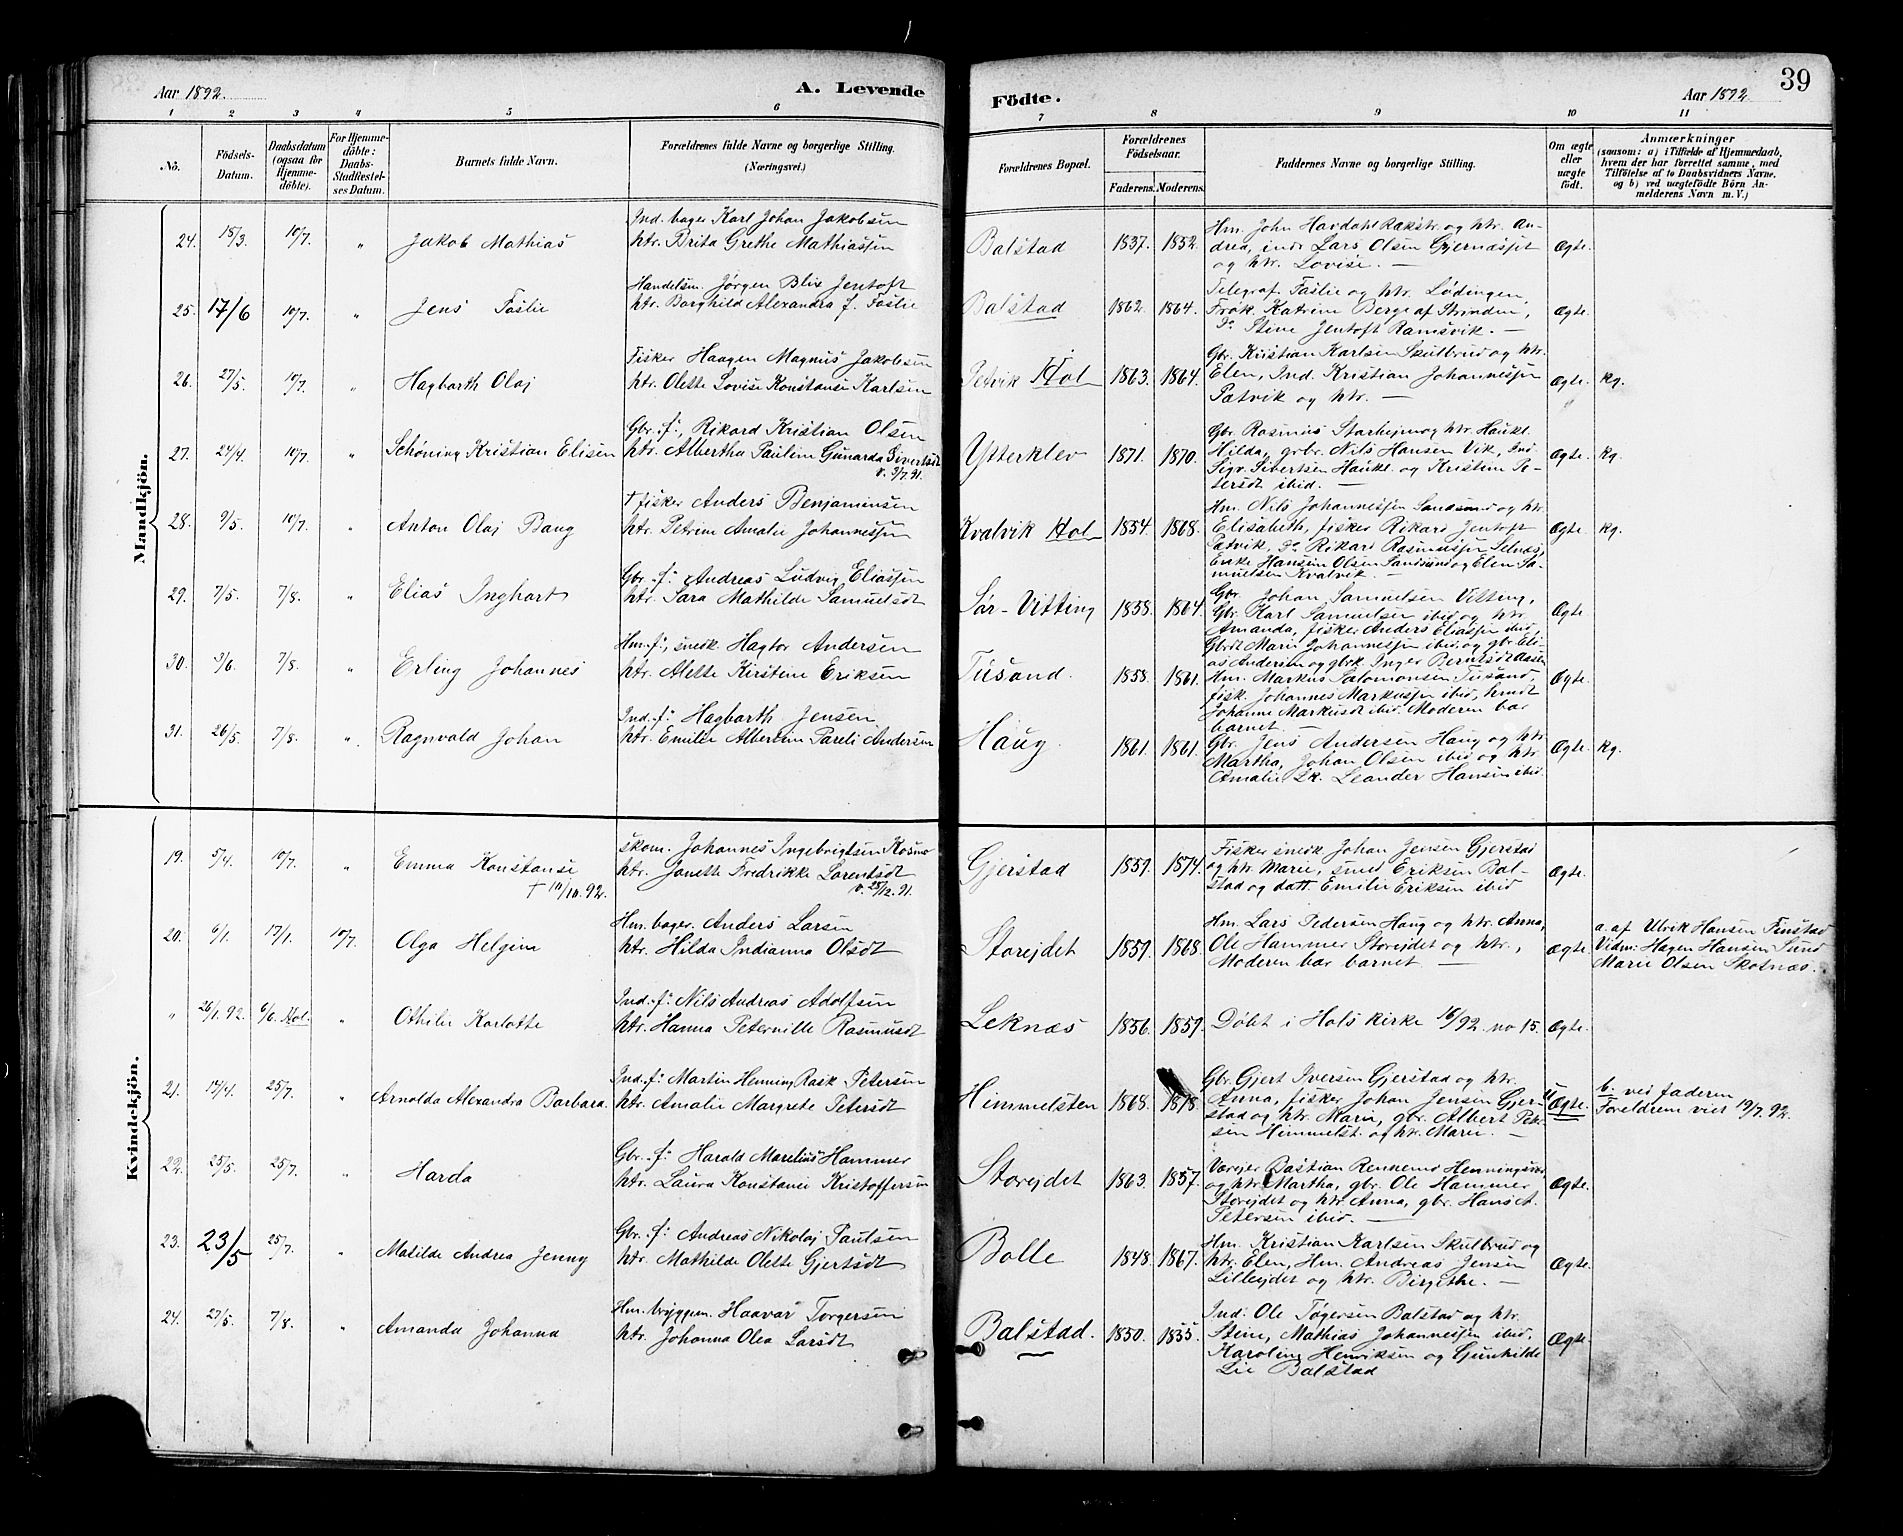 Aar 1892.
A. Levende
Födte.
Aar 1892
39
1 2 3 4 5 6 7 8 9 10 11
No.
Födsels-Datum.
Daabsdatum (ogsaa for Hjemmedöbte).
For Hjemmedöbte: Daabs-Stadfæstelses Datum.
Barnets fulde Navn.
Forældrenes fulde Navne og borgerlige Stilling. (Næringsvei.)
Forældrenes Bopæl.
Forældrenes Födselsaar.
Faderens. Moderens.
Faddernes Navne og borgerlige Stilling.
Om ægte eller uægte födt.
Anmærkninger
(saasom: a) i Tilfælde af Hjemmedaab, hvem der har forrettet samme, med Tilföielse af to Daabsvidners Navne. og b) ved uægtefödte Börn Anmelderens Navn m. V.)
Mandkjön.
24. 18/3. 10/7. " Jakob Mathias
Ind. bager Karl Johan Jakobsen
htr. Brita Grethe Mathiassen
Balstad 1837. 1852.
Hm. John Havdahl Rækstr. og htr. An-
drea, indr Lars Olsen Gjernæsset
og htr. Lovise. —
Ægte.
25. 17/6 10/7. " Jens Faslie
Handelsm. Jørgen Blix Jentoft
htr. Borghild Alexandra f. Faslie
Balstad 1862. 1864.
Telegraf. Faslie og htr. Lødingen,
Frøk. Katrine Berge af Strinden,
Do Stine Jentoft Ramsvik. —
Ægte.
26. 27/5. 10/7. " Hagbarth Olaj
Fisker Haagen Magnus Jakobsen
htr. Olette Lovise Konstanse Karlsen
Petvik Hol 1863. 1864.
Gbr. Kristian Karlsen Skulbrud og htr.
Elen, Ind. Kristian Johannessen
Pætvik og htr. —
Ægte. kg.
27. 24/4. 10/7. " Schøning Kristian Elisen
Gbr. f:, Rikard Kristian Olsen
htr. Albertha Pauline Gunarda Sivertsdt
v. 3/7.91.
Ytterklev 1871. 1870.
Gbr. Rasmus Starhejm og htr. Haukl.
Hilda, grbr. Nils Hansen Vik, Ind.
Sigv. Sibertsen Haukl. og Kristine Pe-
tersdt ibid. —
Ægte. kg.
28. 9/5. 10/7. " Anton Olaj Bang
† fisker Anders Benjaminsen
htr. Petrine Amalie Johannessen
Kvalvik Hol 1854. 1868.
Hm. Nils Johannessen Sandsund og htr.
Elisabeth, fisker Rikard Jentoft
Pætvik, Do Rikard Rasmussen Selnæs,
Enke Hansine Olsen Sandsund og Elen Sa-
muelsen Kvalvik. —
Ægte kg.
29. 7/5. 7/8. " Elias Inghart
Gbr. f: Andreas Ludvig Eliassen
htr. Sara Mathilde Samuelsdt
Sør-Vitting 1858. 1864.
Gbr. Johan Samuelsen Vitting,
Gbr. Karl Samuelsen ibid og htr.
Amanda, fisker Anders Eliassen ibid,
Gbrdt Marie Johannessen ibid, og gbr. Eli-
as Andersen og gbrk. Inger Berntsdt Assen
Ægte
30. 3/6. 7/8. " Erling Johannes
Hm. f:, snedk. Hagtor Andersen
htr. Alette Kirstine Eriksen
Tusand. 1858. 1861.
Hm. Markus Salomonsen Tusand,
fisk. Johannes Markussen ibid, hmdt
Johanne Markusdt ibid. Moderen bar
barnet. —
Ægte.
31. 26/5. 7/8. " Ragnvald Johan
Ind. f: Hagbarth Jensen
htr. Emilie Albertine Pareli Andersen
Haug. 1861. 1861.
Gbr. Jens Andersen Haug og htr.
Martha, Johan Olsen ibid og htr.
Amalie, Leander Hansen ibid.
Ægte. kg.
Kvindekjön.
19. 5/4. 10/7. " Emma Konstanse
† 10/10.92.
Skom. Johannes Ingebrigtsen
htr. Janette Fredrikke Larentsdt
v. 28/12.91.
Gjerstad 1859. 1874.
Fisker snedk Johan Jensen Gjerstad
og htr. Marie, smed Eriksen Bal-
stad og datt. Emilie Eriksen ibid
Ægte.
20. 6/1. 17/1. 10/7. Olga Helgine
Hm. bager. Anders Larsen
htr. Hilda Indianna Olsdt
Storejdet 1859. 1868.
Hm. Lars Pedersen Haug og htr. Anna,
Ole Hammer Storejdet og htr.,
Moderen bar barnet. —
Ægte
a. af Ulrik Hansen Finstad
Vidn: Hagen Hansen Sund
Marie Olsen Skotnæs.
" 26/1.92. 6/6. Hol. " Othilie Karlotte
Ind. f: Nils Andreas Adolfsen
htr. Hanna Peternille Rasmusdt
Leknæs 1856. 1859.
Døbt i Hols kirke 16/92. no 15.
Ægte.
21. 14/4. 25/7. " Arnolda Alexandra Barbara.
Ind. f: Martin Henning Rask Petersen
htr. Amalie Margrete Petersdt
Himmelsten 1868. 1878.
Gbr. Gjert Iversen Gjerstad og htr.
Anna, fisker Johan Jensen Gjer-
stad og htr. Marie, gbr. Albert Peter-
sen Himmelst. og htr. Marie. —
Ægte.
b. ved faderen
Foreldrene vier 19/7.92.
22. 25/5. 25/7. " Harda
Gbr. f: Harald Marelius Hammer
htr. Laura Konstanse Kristoffersen
Storejdet 1863. 1857.
Værejer Bastian Rennemo Henningsvær
og htr. Martha, gbr. Ole Hammer
Storejdet og htr. Anna, gbr. Hans A.
Petersen ibid. —
Ægte.
23. 23/5 25/7. " Matilde Andrea Jenny
Gbr. f: Andreas Nikolaj Paulsen
htr. Mathilde Olette Gjertsdt
Bolle 1848. 1867.
Hm. Kristian Karlsen Skulbrud og
htr. Elen, Hm. Andreas Jensen
Lillejdet og htr. Birgithe. —
Ægte.
24. 27/5. 7/8. " Amanda Johanna
Hm. bryggem. Haavar Torgersen
htr. Johanna Olea Larsdt
Balstad. 1850. 1855.
Ind: Ole Tøgersen Balstad og htr.
Stine, Mathias Johannessen ibid,
Karoline Henriksen og Gunhilde
Lie Balstad
Ægte.